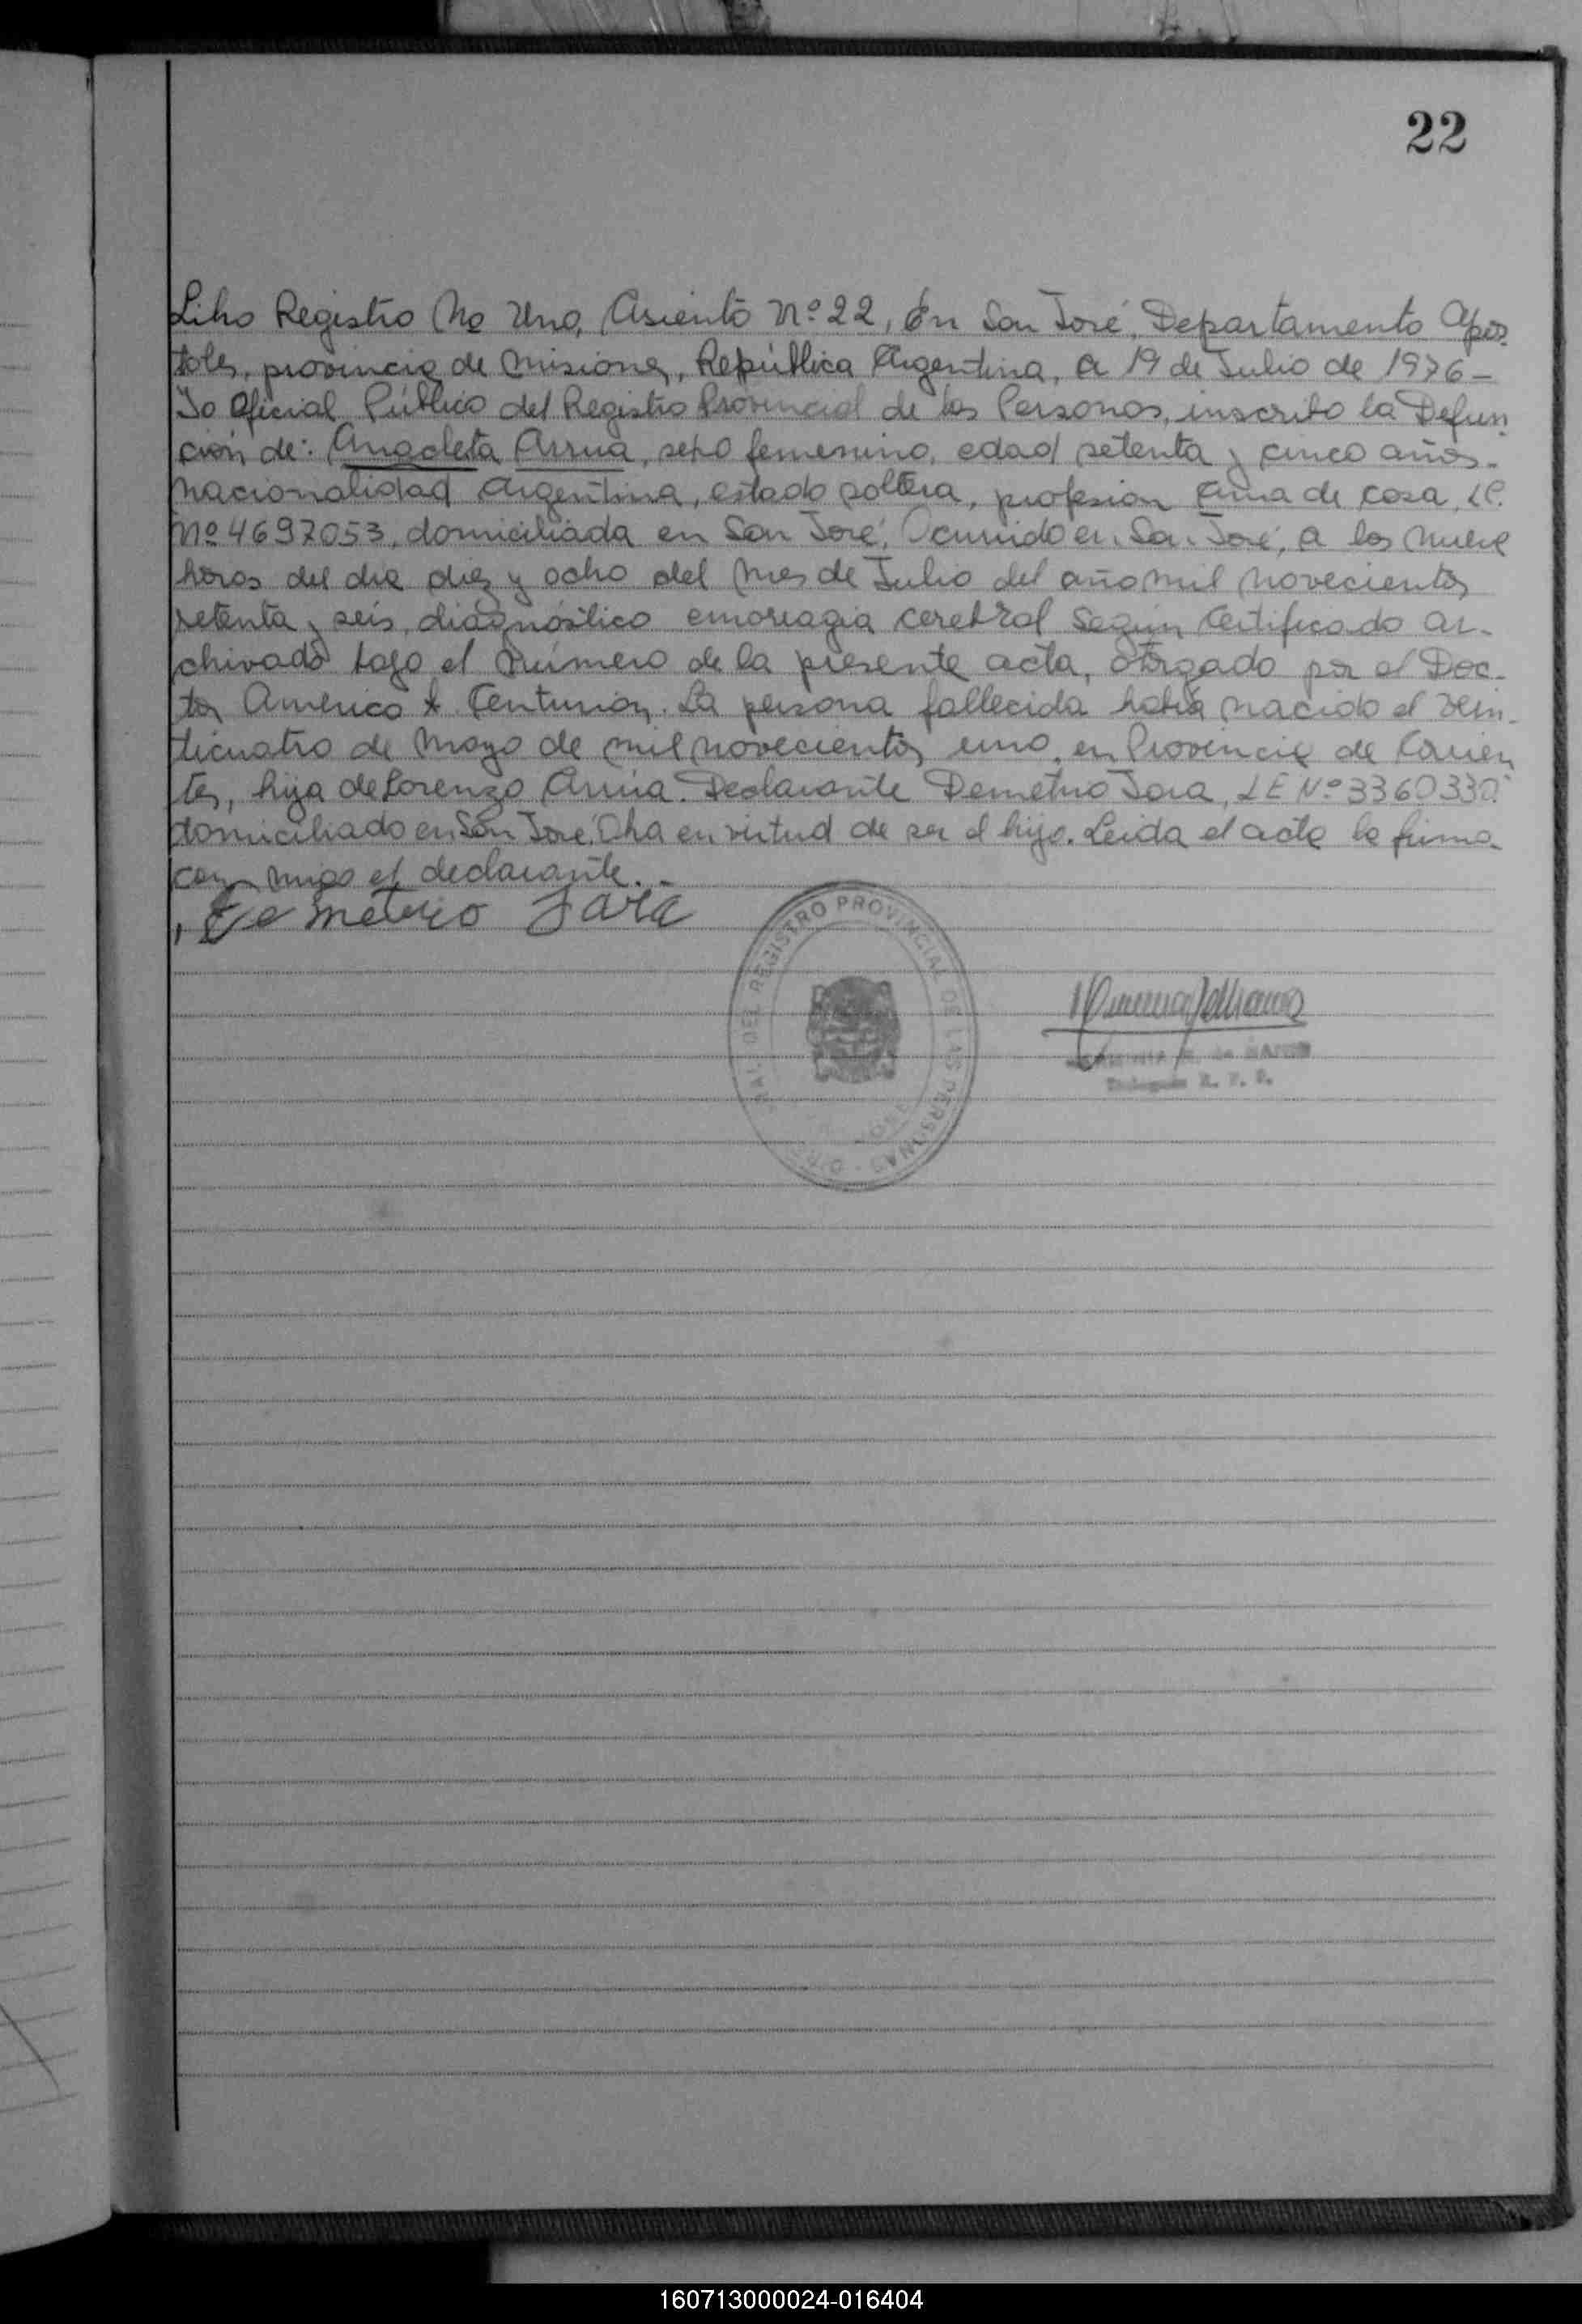 22
Libro Registro No Uno, Asiento Nº 22, En San José, Departamento Após
toles, provincia de Misiones, República Argentina, a 19 de Julio de 1976-
Yo Oficial Público del Registro Provincial de las Personas, inscribo la Defun
ción de: Anacleta Arrua, sexo femenino, edad setenta y cinco años-
nacionalidad Argentina, estado soltera, profesión ama de casa, LC.
Nº 4697053, domiciliada en San José, Ocurrido en San José, a las nueve
horas del dia diez y ocho del mes de Julio del año mil novecientos
setenta y seis, diagnóstico emorragia cerebral Según Certificado ar-
chivado bajo el número de la presente acta, otorgado por el Doc-
tor Américo A. Centurion. La persona fallecida había nacido el vein-
ticuatro de Mayo de mil novecientos uno, en Provincia de Corrien
tes, hija de Lorenzo Arrúa. Declarante Demetrio Jara, LE Nº 3360330.
domiciliado en San José. Obra en virtud de ser el hijo. Leida el acta la firma
con migo el declarante..-
Demetrio Jara
DEL REGISTRO PROVINCIAL DE LAS PERSONAS
JOSE
R. P. P.
160713000024-016404